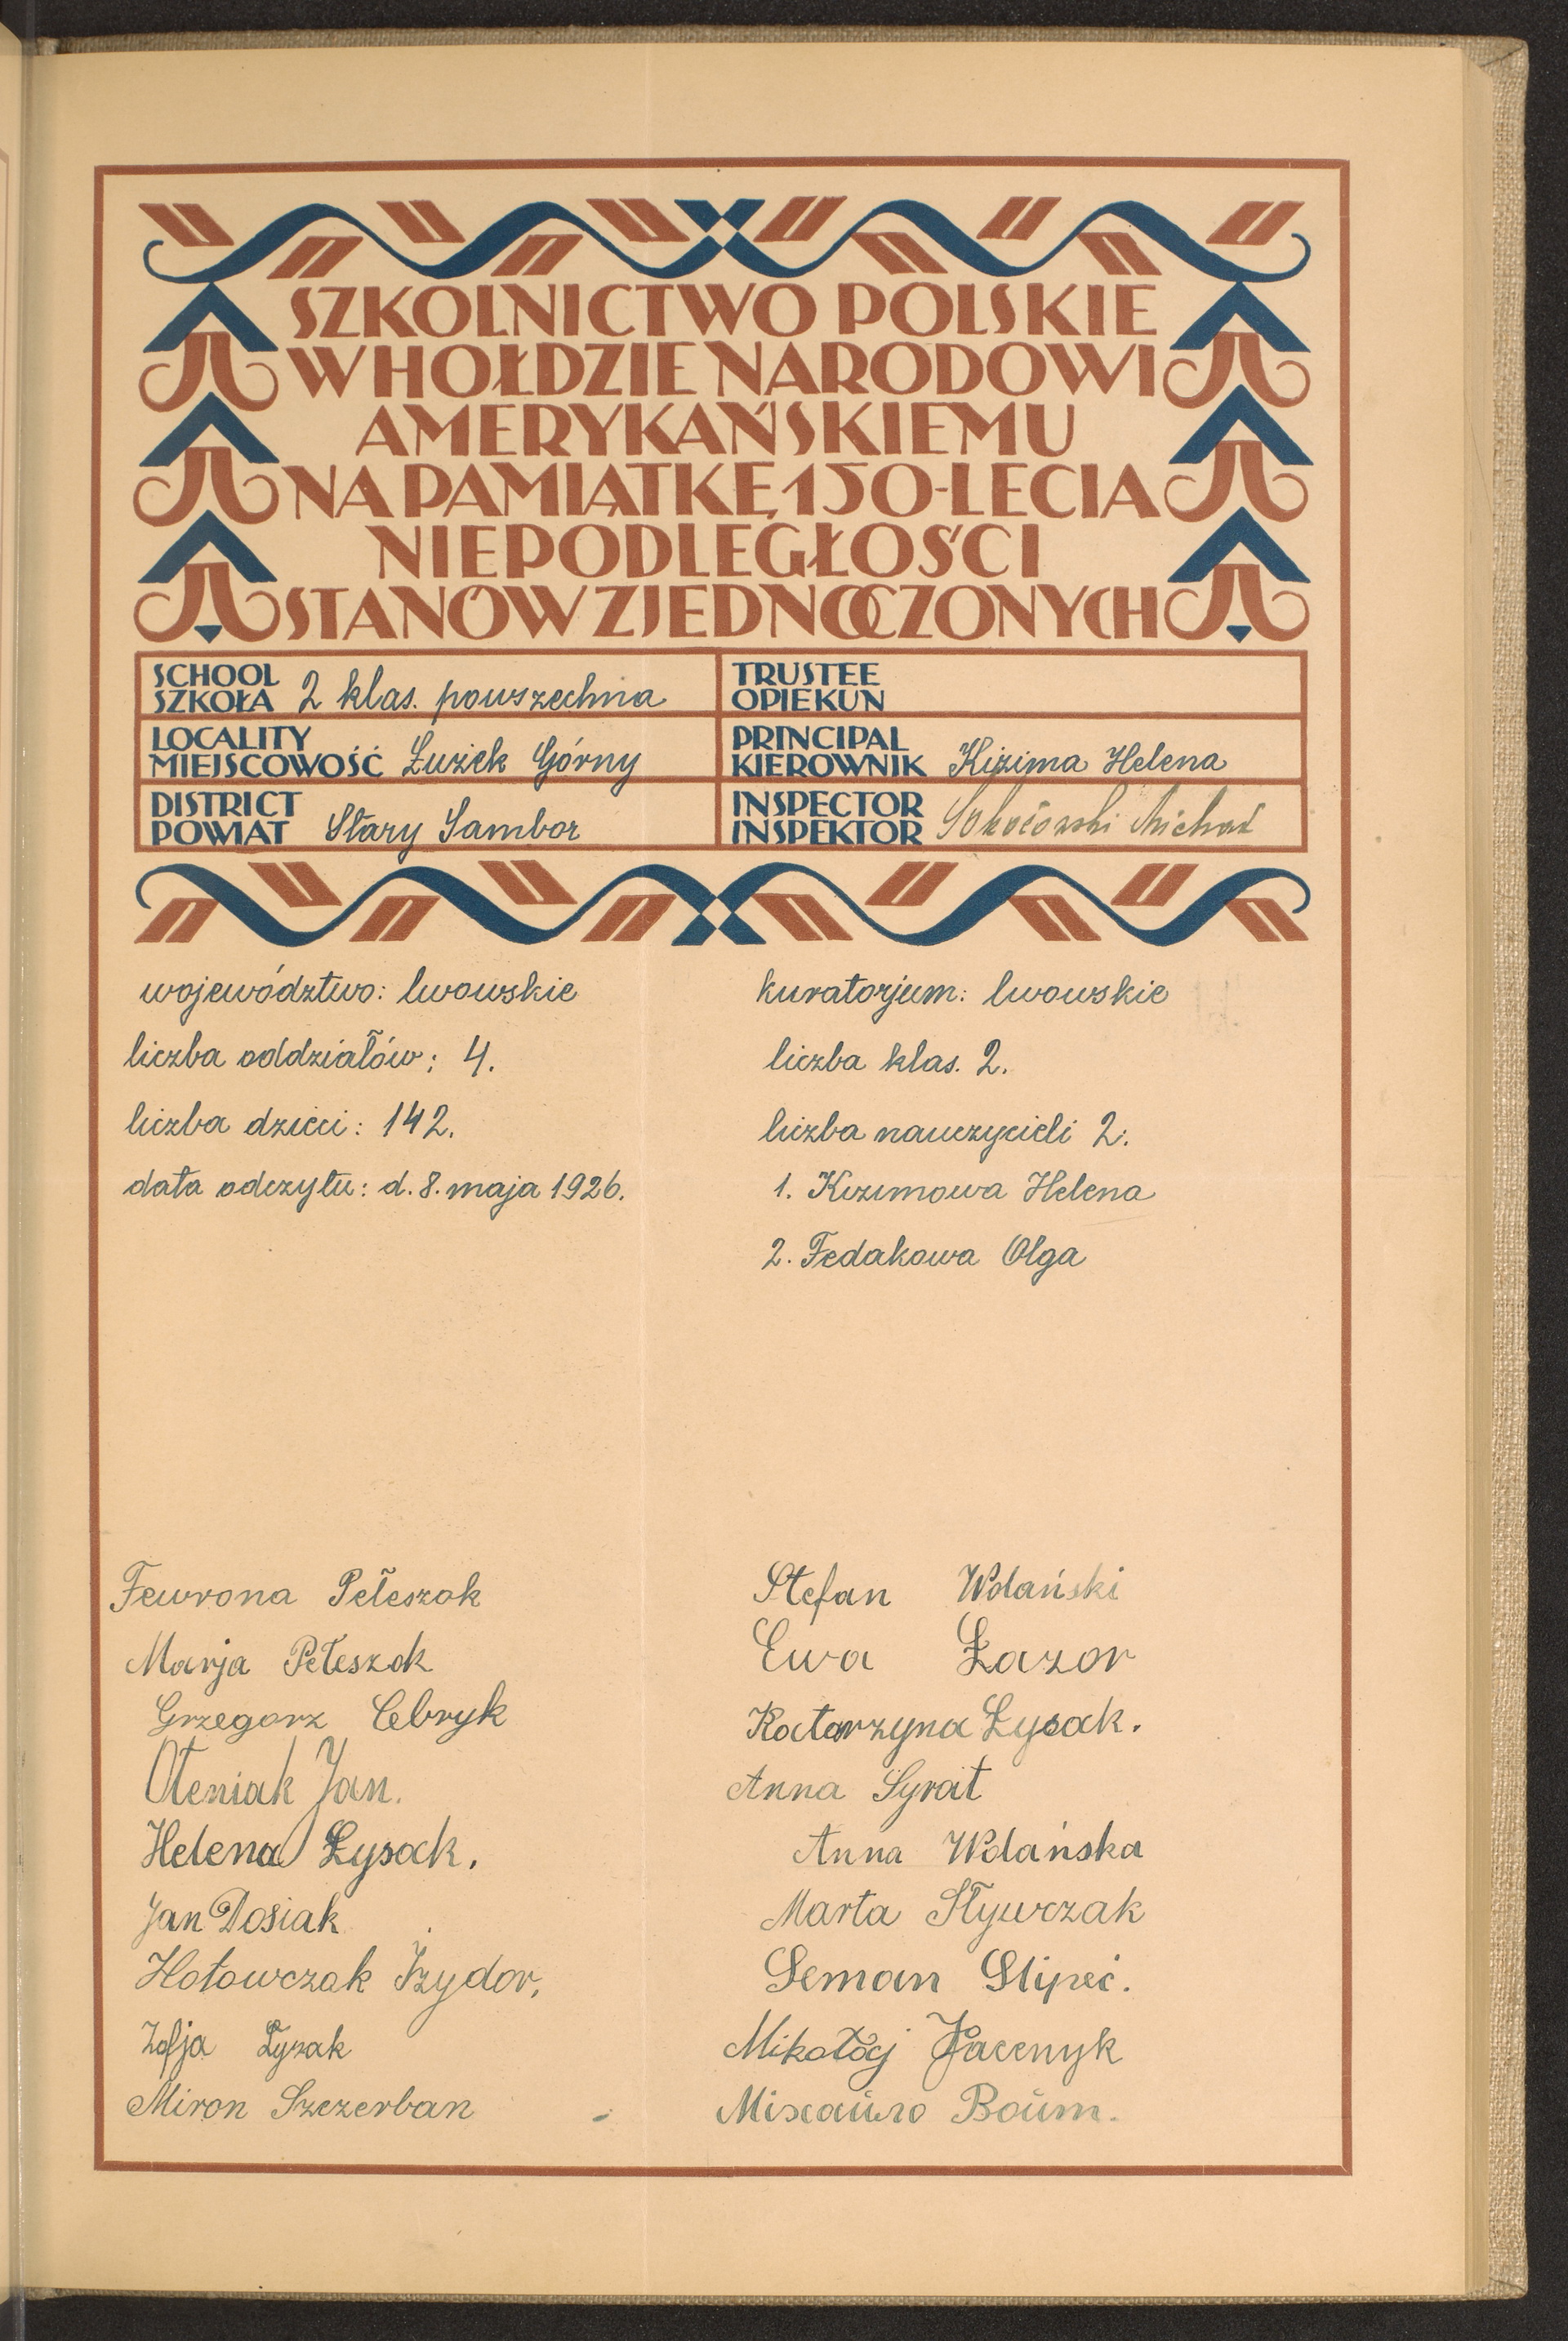 SZKOLNICTWO POLSKIE
W HOŁDZIE NARODOWI
AMERYKAŃSKIEMU
NA PAMIĄTKĘ 150-LECIA
NIEPODLEGŁOŚCI
STANÓW ZJEDNOCZONYCH
SCHOOL
SZKOŁA 2 klas. powszechna
TRUSTEE
OPIEKUN
LOCALITY
MIEJSCOWOŚĆ Łużek Górny
PRINCIPAL
KIEROWNIK Kizima Helena
DISTRICT
POWIAT Stary Sambor
INSPECTOR
INSPEKTOR Sokołowski Michał
województwo: lwowskie
kuratorjum: lwowskie
liczba oddziałów: 4.
liczba klas. 2.
liczba dzieci: 142.
liczba nauczycieli 2.
data odczytu: d. 8. maja 1926.
1. Kizimowa Helena
2. Fedakowa Olga
Fewrona Pełeszak
Marja Pełeszak
Grzegorz Cebryk
Oleniak Jan.
Helena Łysak.
Jan Dosiak
Hołowczak Izydor.
Zofja Łysak
Miron Szczerban
Stefan Wolański
Ewa Łazor
Katarzyna Łysak.
Anna Syrat
Anna Wolańska
Marta Sływczak
Seman Slipeć.
Mikołaj Jacenyk
Михайло Воим.